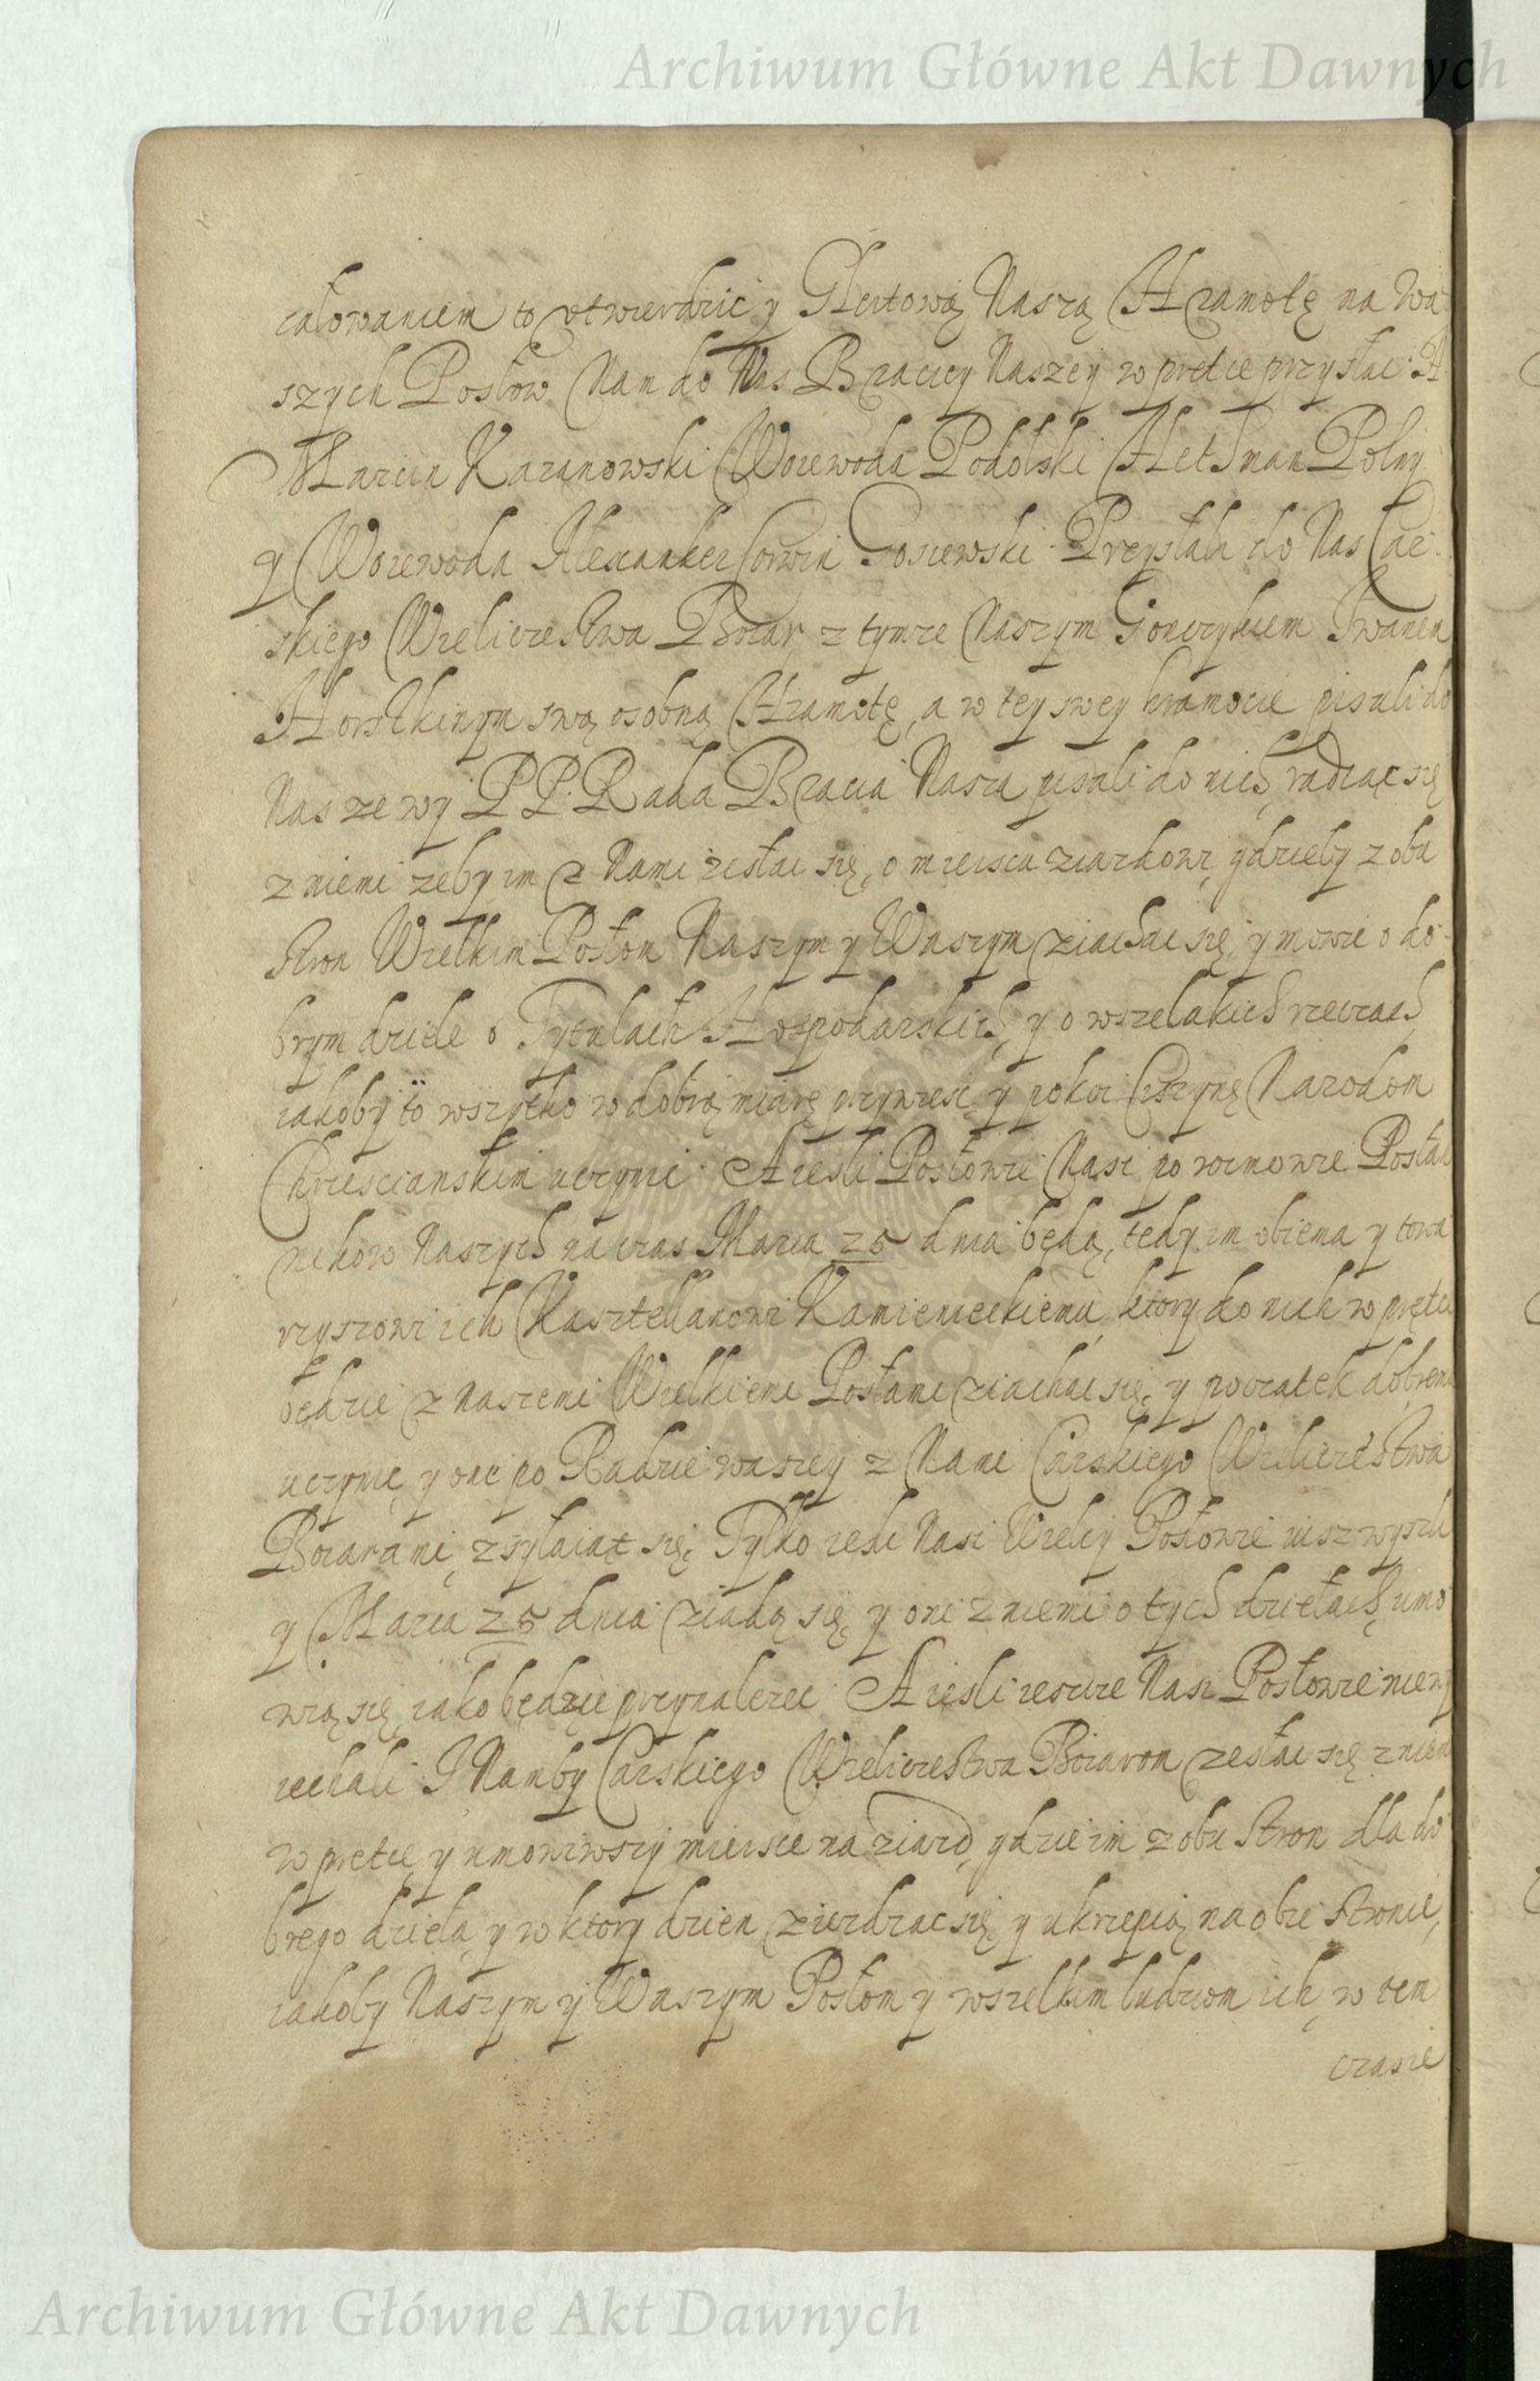 Archiwum Główne Akt Dawnych
całowaniem to utwierdzić y Hleitową Naszą Hramotę na Wa
szych Posłow Nam do Was Braciey Naszey w prętce przysłac. A
Marcin Kazanowski Woiewoda Podolski Hetman Polny
y Woiewoda Alexander Corvin Gosiewski. Przysłali do Nas Car
skiego Wieliczestwa Boiar z tymze Naszym Gonczykiem Iwanem
Horstkinym swą osobną Hramotę, a w tey swey hramocie pisali do
Nas ze wy P P. Rada Bracia Nasza pisali do nich, radząc się
z niemi zeby im z Nami zesłac się, o mieiscu ziazdowi, gdzieby z obu
stron Wielkim Posłom Naszym y Waszym ziachac się, y mowic o do
brym dziele o Tytułach Hospodarskich, y o wszelakich rzeczach
iakoby to wszytko w dobrą miarę przywiesc, y pokoi Narodom
Chrzescianskim uczynic. A iesli Posłowie Nasi po wimowie Posłan
nikow Naszych na czas Marca 25 dnia będą, tedy im obiema y towa
rzyszowi ich Kasztellanowi Kamienieckiemu, ktory do nich w prętce
będzie z naszemi Wielkiemi Posłami ziachac się, y początek dobremu
uczynic, y oni po Radzie waszey z Nami Carskiego Wieliczestwa
Boiarami, zsyłaiąt się. Tylko iesli Nasi Wielcy Posłowie iusz wyszli
y Marca 25 dnia ziadą się, y oni z niemi o tych dziełach, umo
wią się, iako będzie przynalezec. A iesli ieszcze Nasi Posłowie nie wy
iechali I Namby Carskiego Wieliczestwa Boiarom zesłac się z niemi
w prętce, y umowiwszy mieisce na ziazd, gdzie im z obu stron dla do
brego dzieła, y w ktory dzien ziezdzac się, y ukrzepią na obie stronie,
iakoby Naszym y Waszym Posłom y wszelkim ludziom ich, w tem
czasie
Archiwum Główne Akt Dawnych